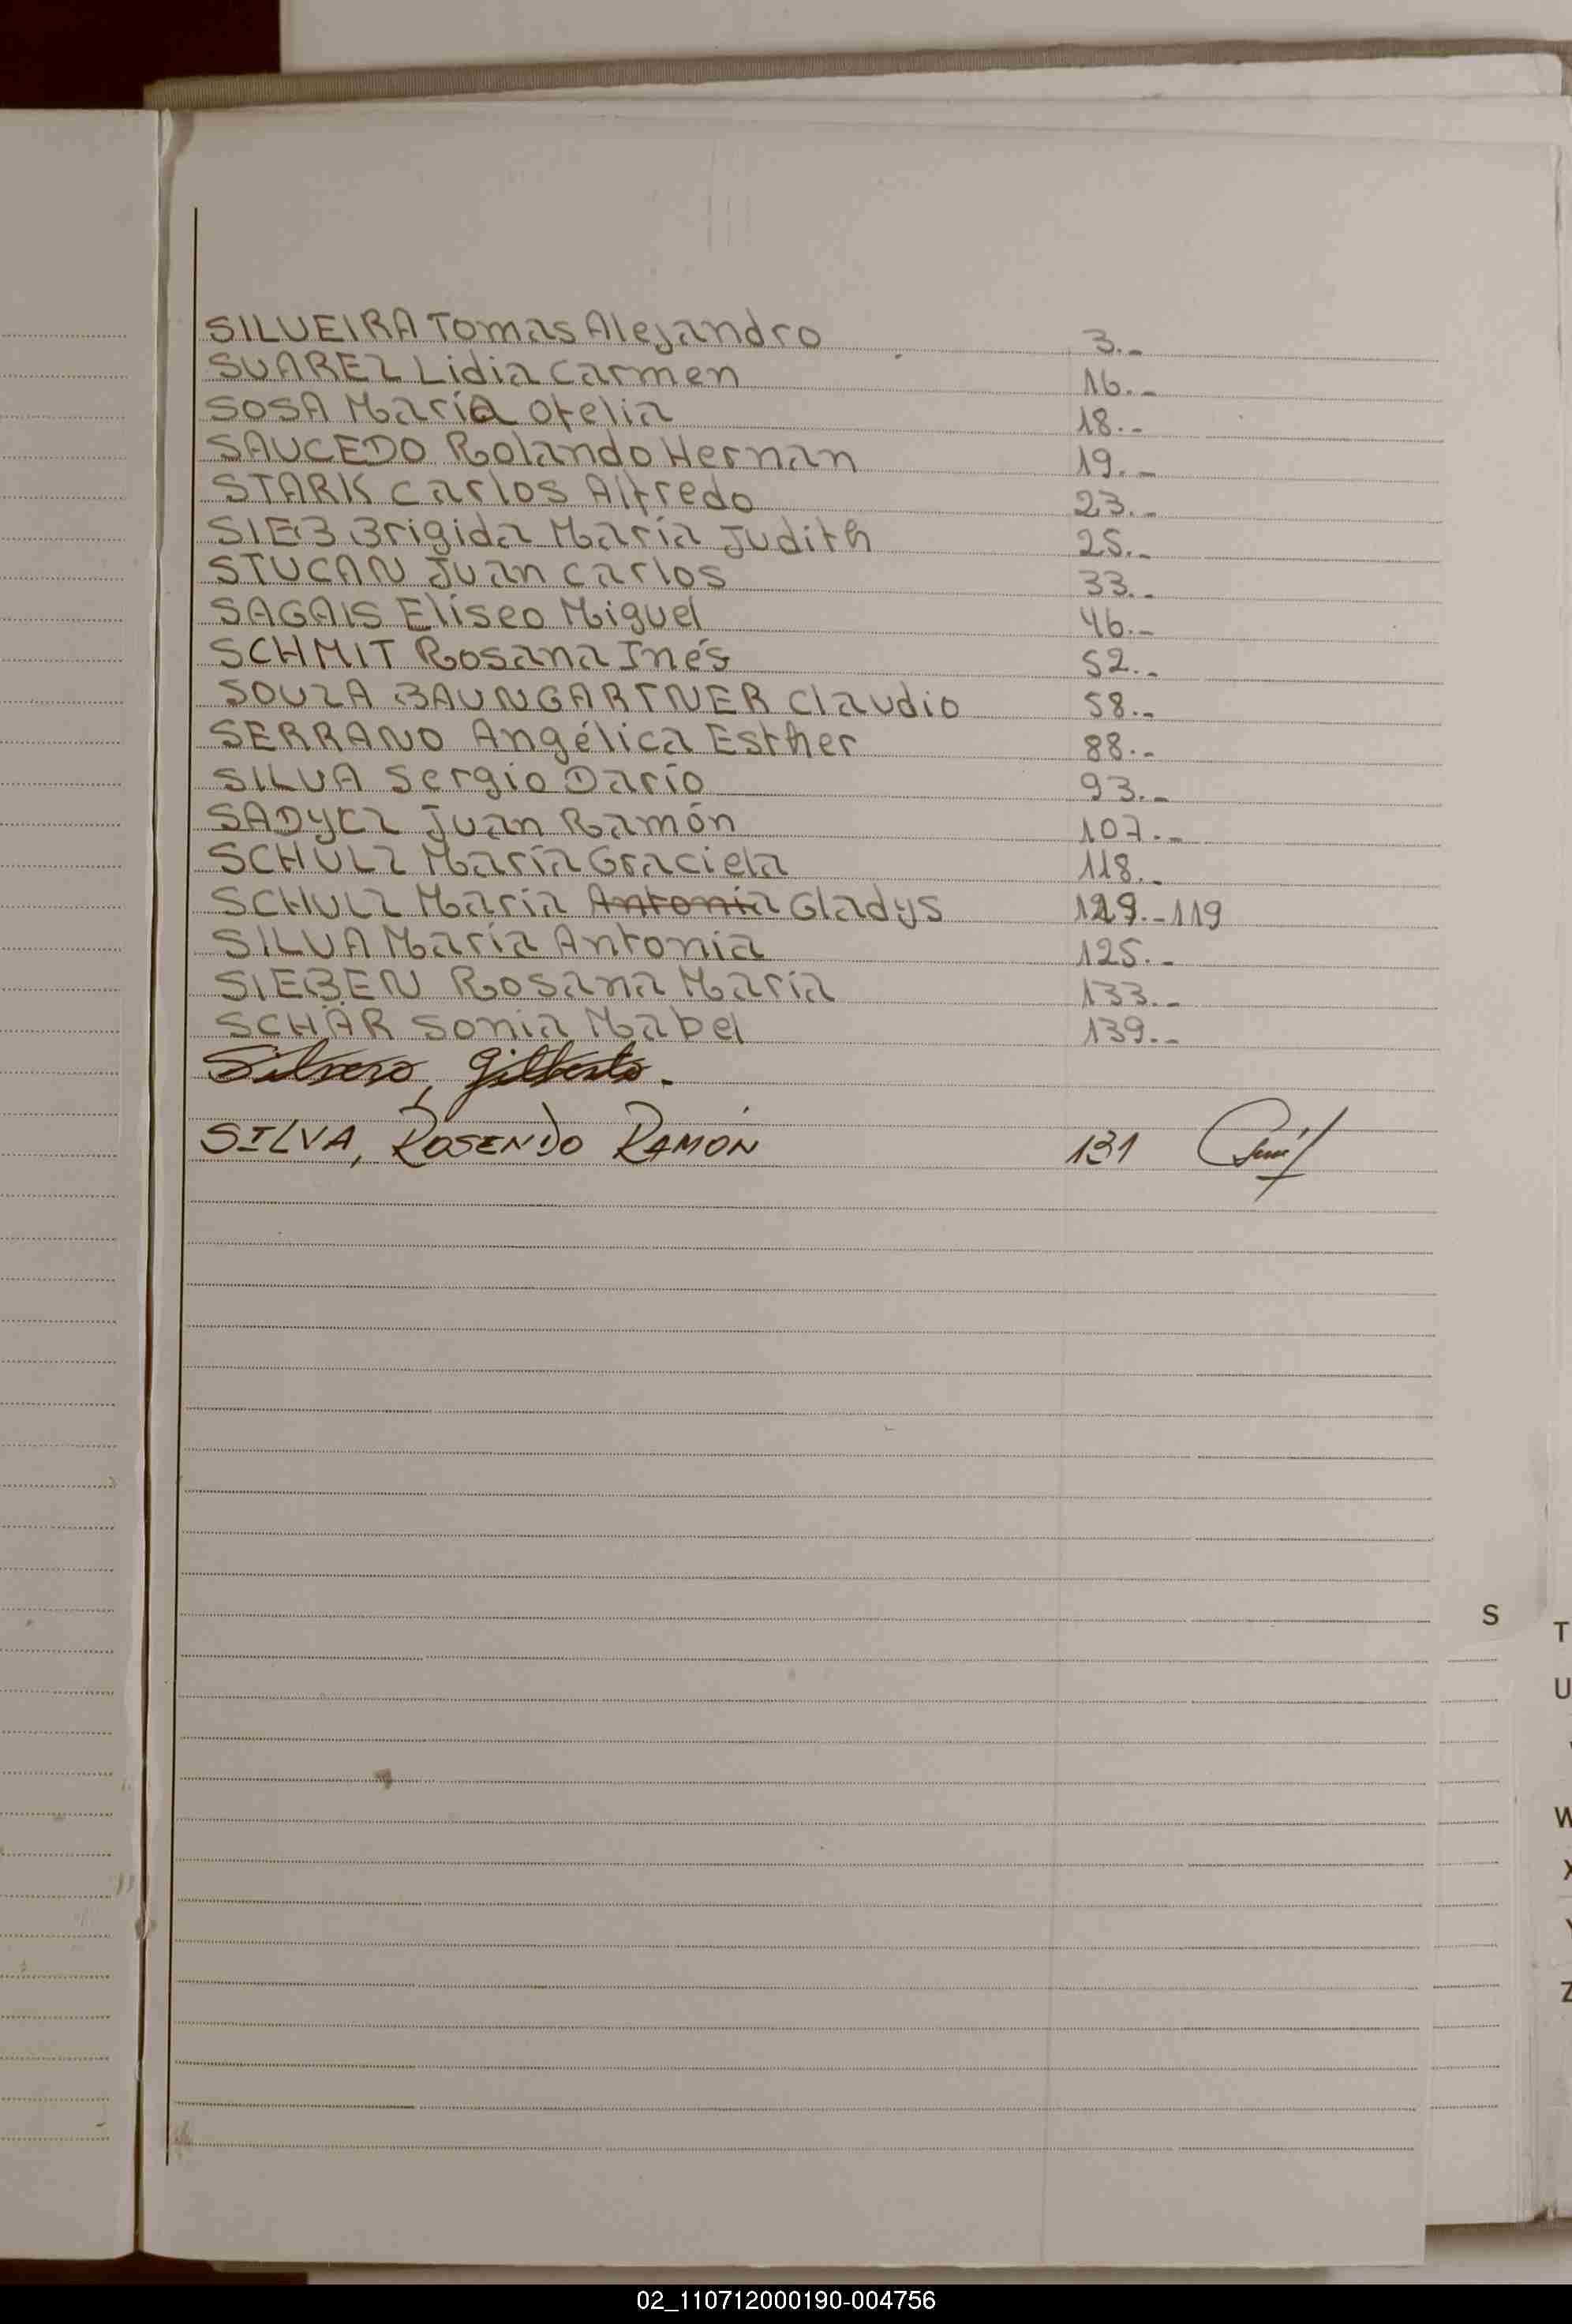 SILVEIRA Tomas Alejandro 3.-
SUAREZ Lidia Carmen 16.-
SOSA María Ofelia 18.-
SAUCEDO Rolando Hernan 19.-
STARK Carlos Alfredo 23.-
SIEB Brigida María Judith 25.-
STUCAN Juan Carlos 33.-
SAGAIS Eliseo Miguel 46.-
SCHMIT Rosana Inés 52.-
SOUZA BAUNGARTNER Claudio 58.-
SERRANO Angélica Esther 88.-
SILVA Sergio Darío 93.-
SADYCZ Juan Ramón 107.-
SCHULZ María Graciela 118.-
SCHULZ María Antonia Gladys 129.-119
SILVA María Antonia 125.-
SIEBEN Rosana María 133.-
SCHÄR Sonia Mabel 139.-
Silvero, Gilberto.
SILVA, ROSENDO RAMÓN 131
S
T
U
W
X
Y
Z
02_110712000190-004756